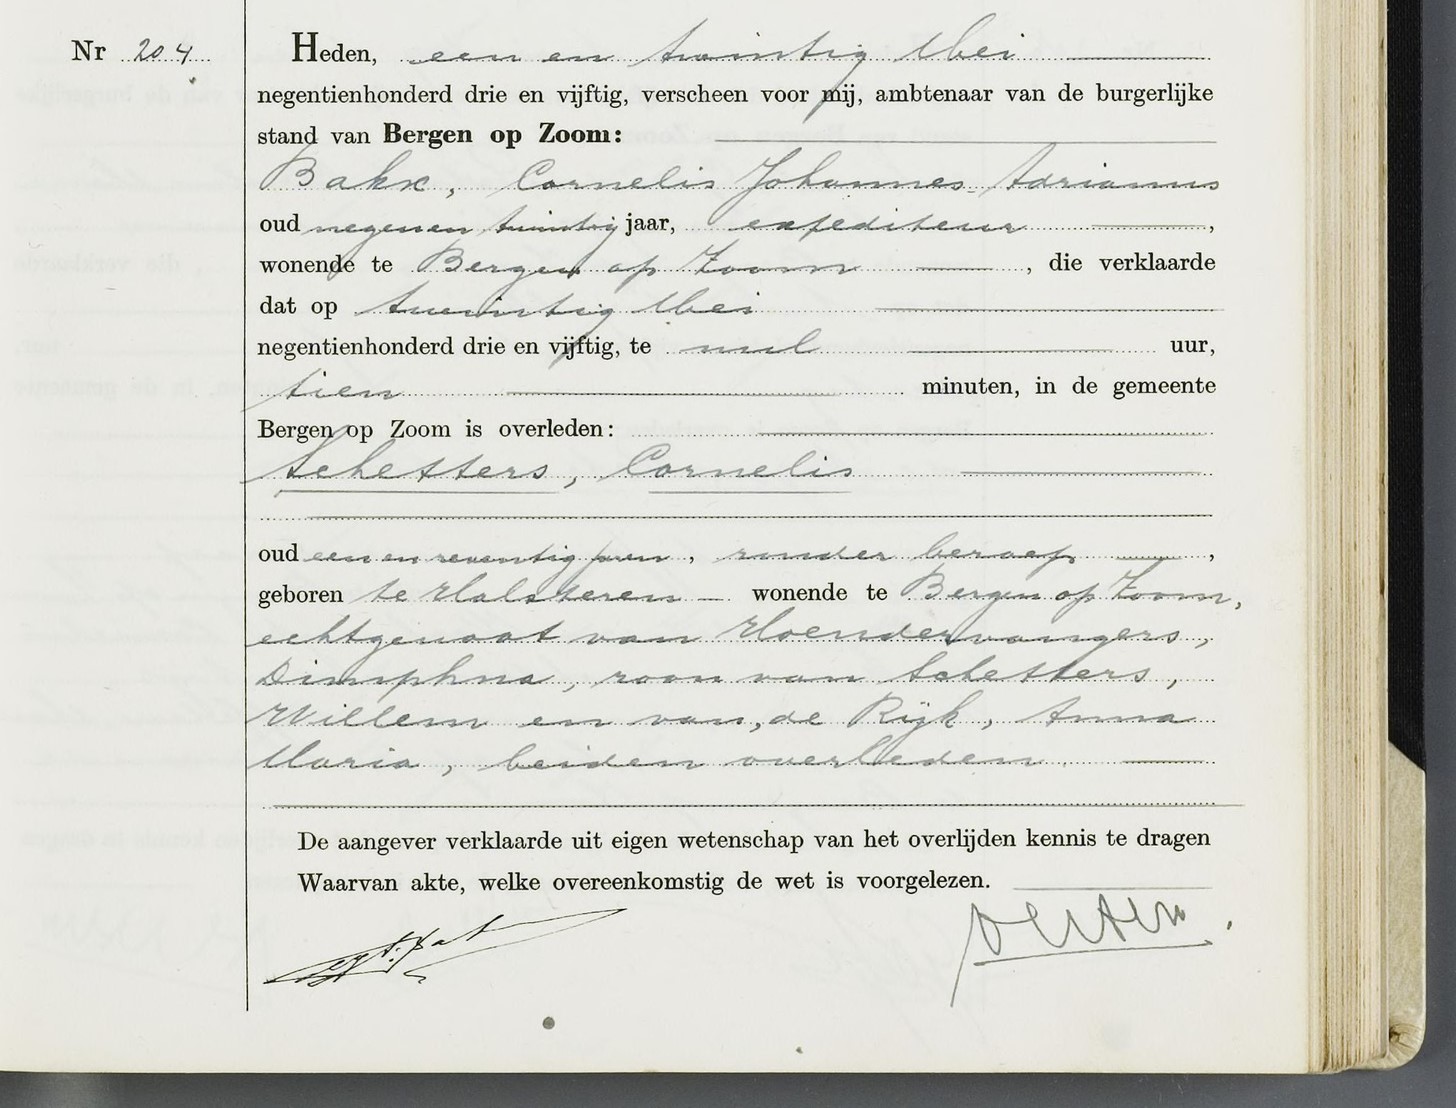 Nr 204
Heden, een en twintig Mei
negentienhonderd drie en vijftig, verscheen voor mij, ambtenaar van de burgerlijke
stand van Bergen op Zoom:
Bakx, Cornelis Johannes Adrianus
oud negenen twintig jaar, expediteur ,
wonende te Bergen op Zoom , die verklaarde
dat op twintig Mei
negentienhonderd drie en vijftig, te nul uur,
tien minuten, in de gemeente
Bergen op Zoom is overleden:
Schetters, Cornelis
oud eenenzeventig jaren, zonder beroep ,
geboren te Halsteren wonende te Bergen op Zoom,
echtgenoot van Hoendervangers,
Dimphna, zoon van Schetters,
Willem en van de Rijk, Anna
Maria, beiden overleden.
De aangever verklaarde uit eigen wetenschap van het overlijden kennis te dragen
Waarvan akte, welke overeenkomstig de wet is voorgelezen.